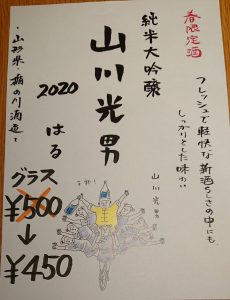 春限定酒
フレッシュで軽快な新酒らしさの中にも
しっかりとした味わい
純米大吟醸
山川光男
2020 はる
・山形県・楯の川酒造
グラス
¥500
↓
¥450
山川光男